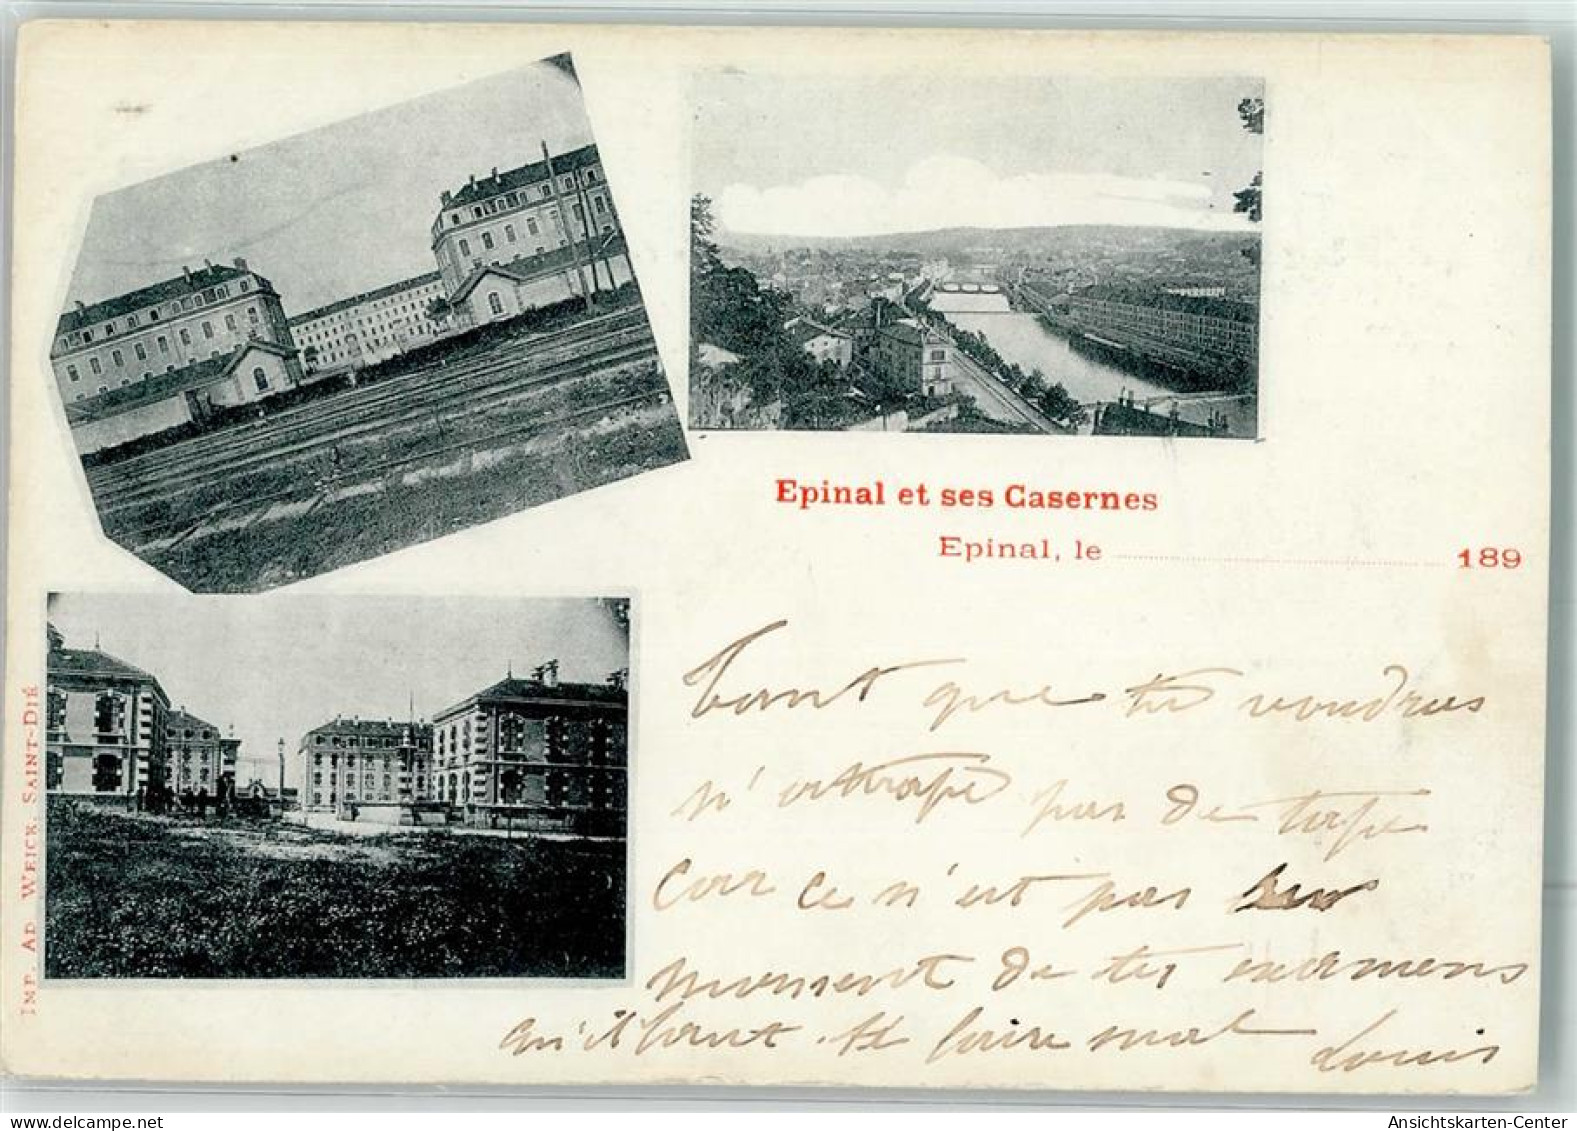 Epinal et ses Casernes
Epinal, le 189
Tant que tu voudras
n'attrape pas de
car ce n'est pas au
moment de tes examens
qu'il faut te faire mal
Louis
IMP. AD. WEICK, SAINT-DIÉ
www.delcampe.net
Ansichtskarten-Center